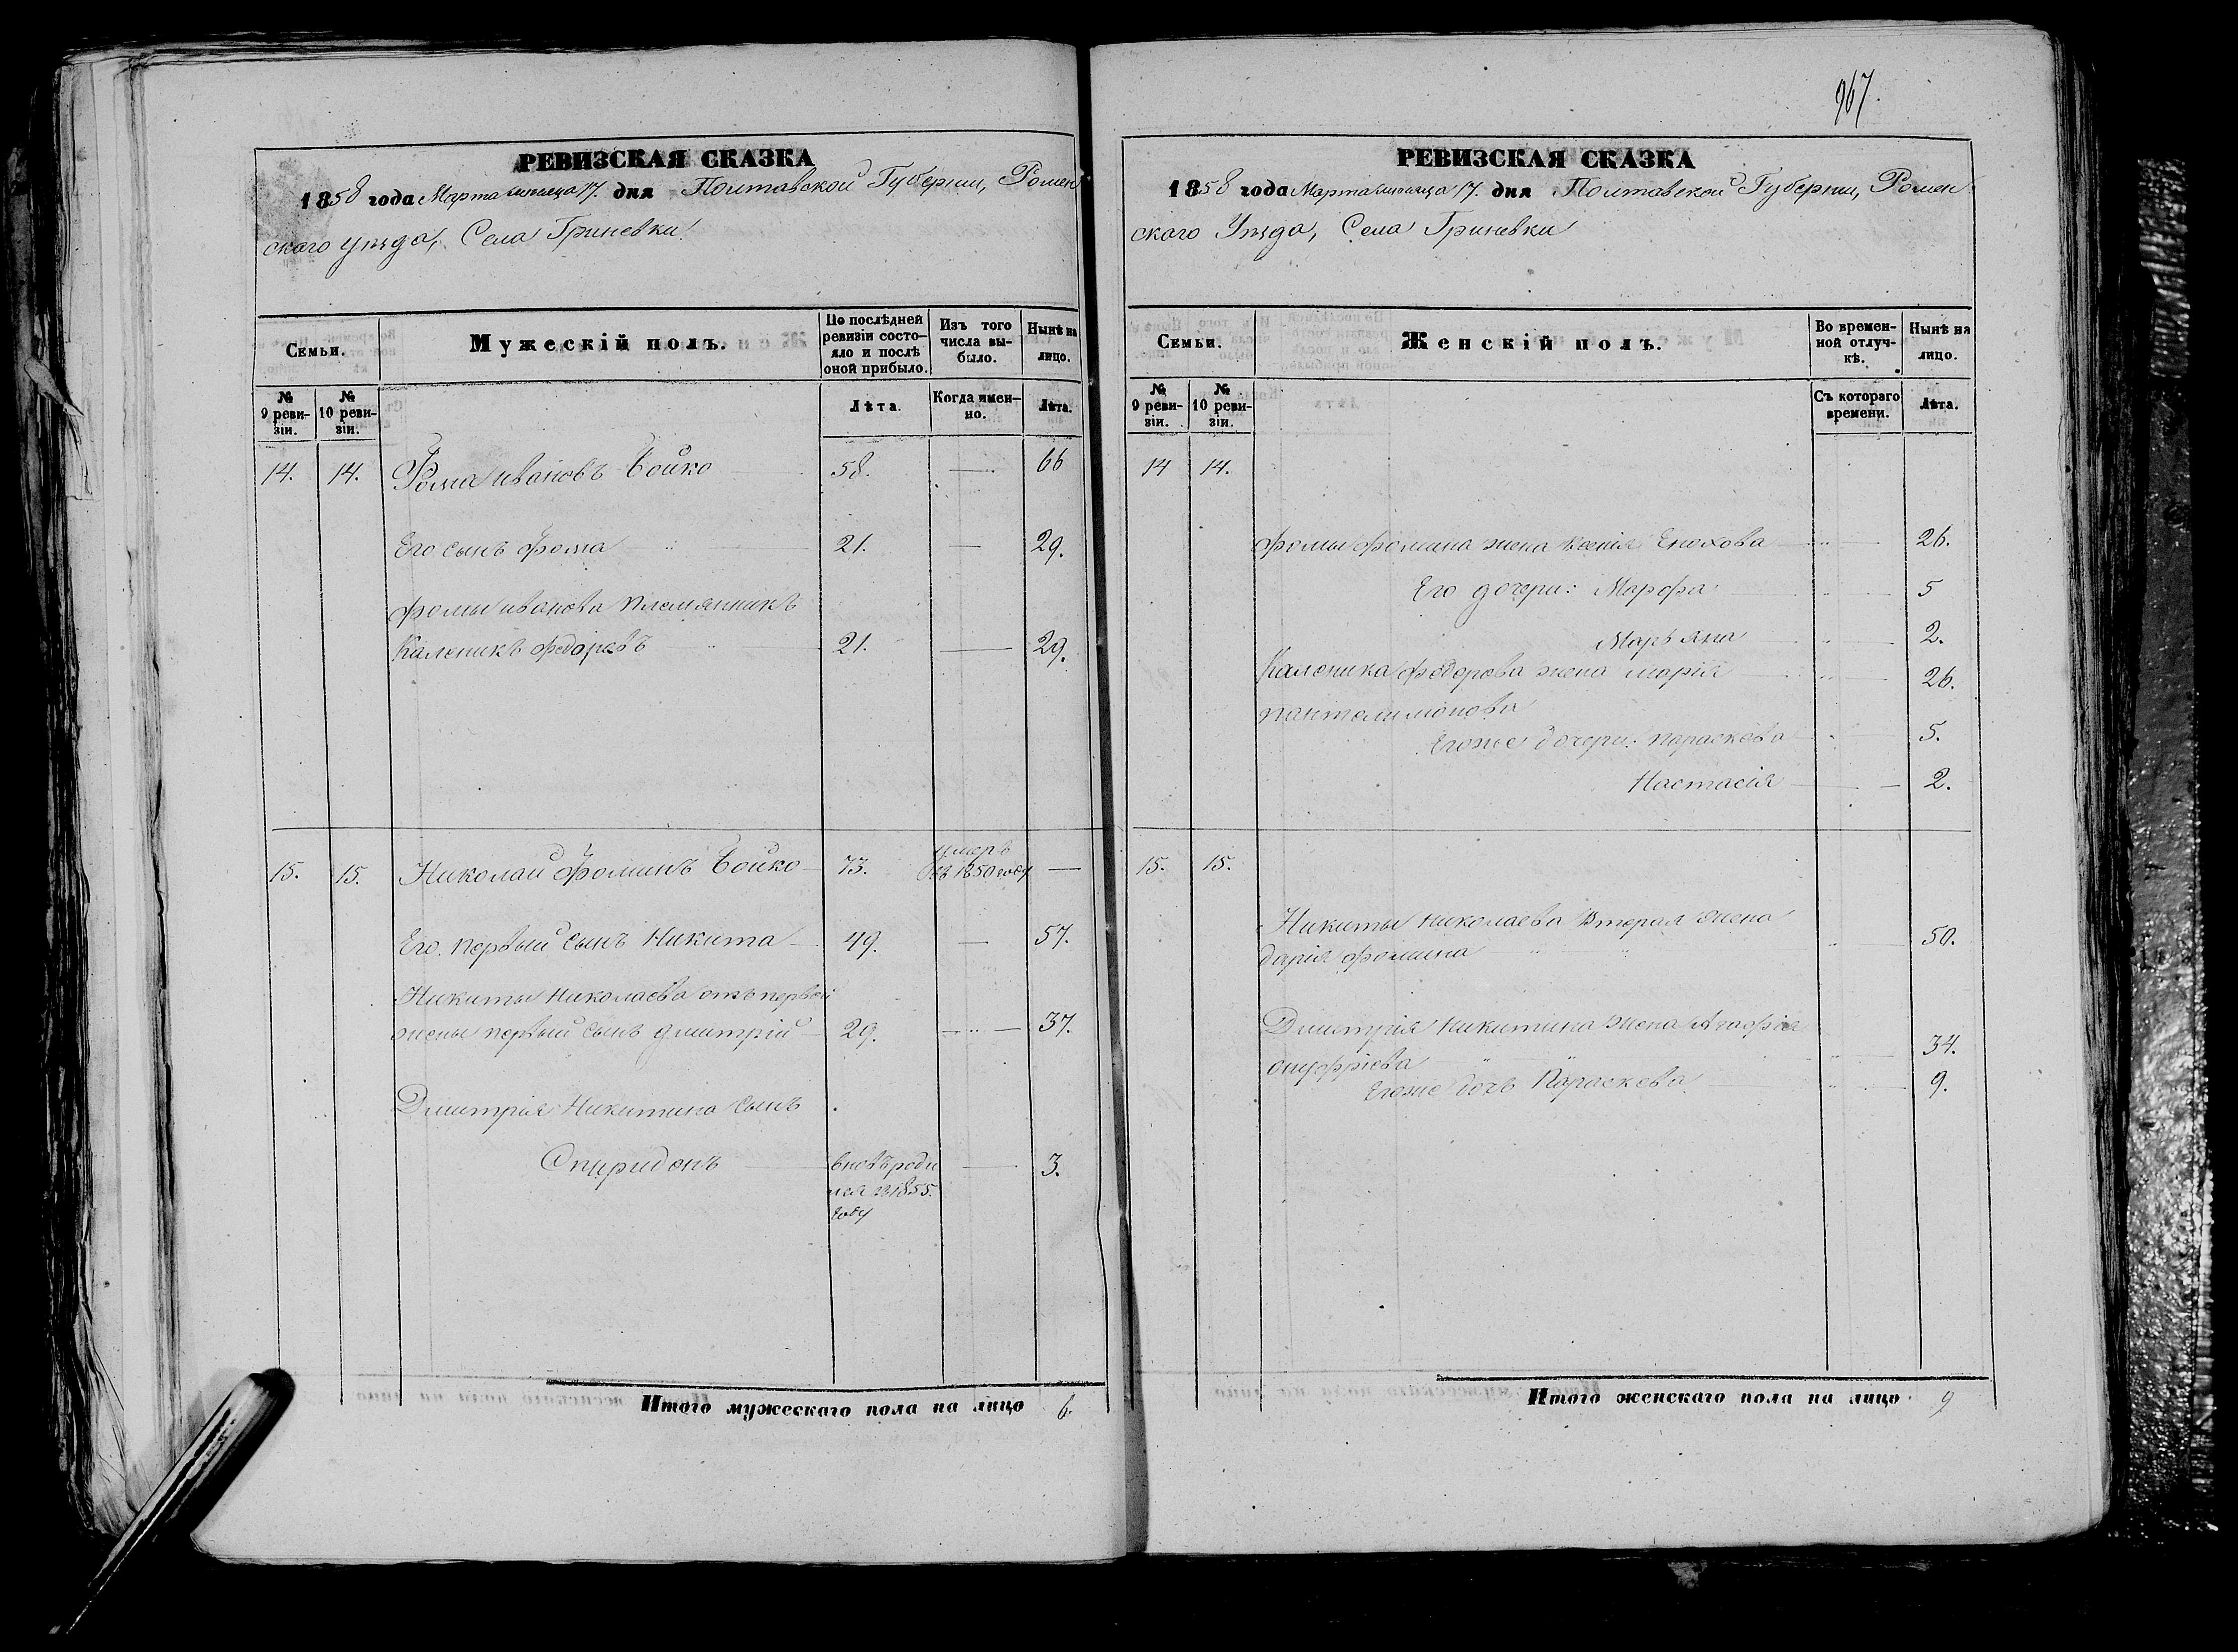 967.
РЕВИЗСКАЯ СКАЗКА
1858 года Марта месяца 17. дня Полтавской Губернии, Ромен
ского уезда, Села Гриневки
Семьи.
Мужескій полъ.
По послѣдней ревизіи состояло и послѣ оной прибыло.
Изъ того числа выбыло.
Нынѣ на лицо.
№ 9 ревизіи.
№ 10 ревизіи.
Лѣта.
Когда именно.
Лѣта.
14. 14. Фома Ивановъ Бойко 58. — 66
Его сынъ Фома 21. — 29.
Фомы Иванова племянникъ
Каленикъ Федоровъ 21. — 29.
15. 15. Николай Фоминъ Бойко 73. умеръ въ 1850 году —
Его первый сынъ Никита 49. — 57.
Никиты Николаева отъ первой
жены первый сынъ Дмитрій 29. — 37.
Дмитрія Никитина сынъ
Спиридонъ вновь роди — 3.
лся въ 1855.
году
Итого мужескаго пола на лицо 6.
РЕВИЗСКАЯ СКАЗКА
1858 года Марта месяца 17. дня Полтавской Губернии, Ромен
ского Уезда, Села Гриневки
Семьи.
Женскій полъ.
Во временной отлучкѣ.
Нынѣ на лицо.
№ 9 ревизіи.
№ 10 ревизіи.
Съ котораго времени.
Лѣта.
14 14.
Фомы Фомина жена Ксенія Енохова 26.
Его дочери: Марфа 5
Марьяна 2.
Каленика Федорова жена Марія 26.
Пантелимонова
Егоже дочери: Параскева 5.
Настасія 2.
15. 15.
Никиты Николаева вторая жена
Дарія Фомина 50.
Дмитрія Никитина жена Агафія
Онуфріева 34.
Егоже дочь Параскева 9.
Итого женскаго пола на лицо 9